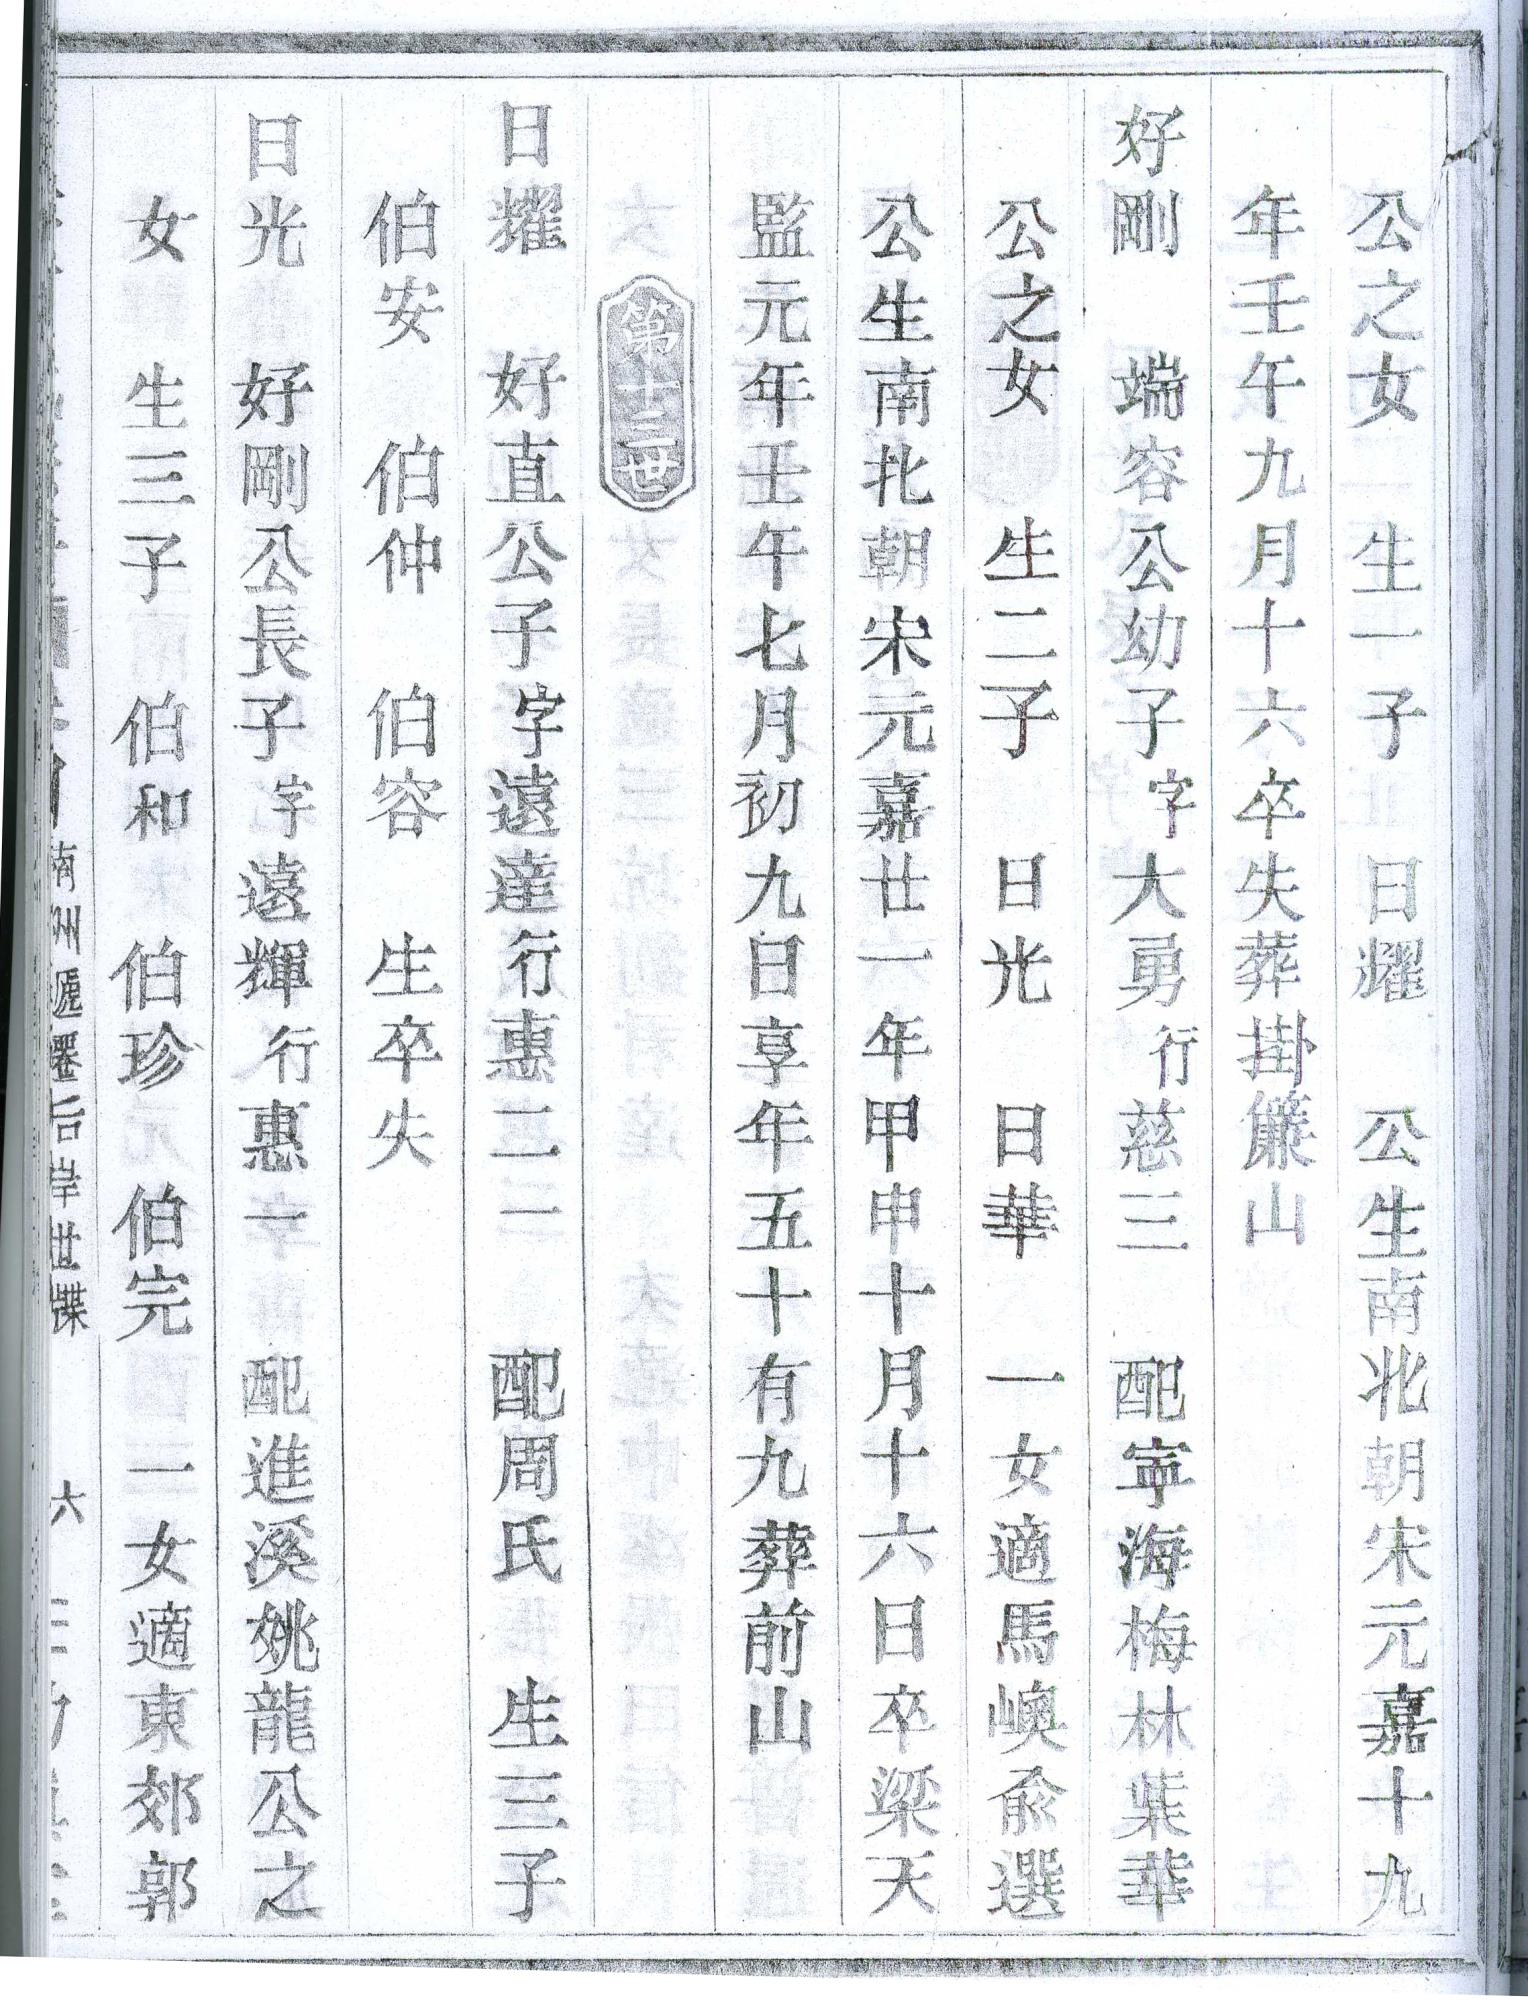 公之女　生一子　日耀　公生南北朝宋元嘉十九
年壬午九月十六卒失葬掛簾山
好剛　端容公幼子字大勇行慈三　配寧海梅林葉華
公之女　生二子　日光　日華　一女適馬嶴俞選
公生南北朝宋元嘉廿一年甲申十月十六日卒梁天
監元年壬午七月初九日享年五十有九葬前山
第十三世
日耀　好直公子字遠達行惠二　配周氏　生三子
伯安　伯仲　伯容　生卒失
日光　好剛公長子字遠輝行惠一　配進溪姚龍公之
女　生三子　伯和　伯珍　伯完　一女適東郊郭
南州遞遷后岸世牒　六